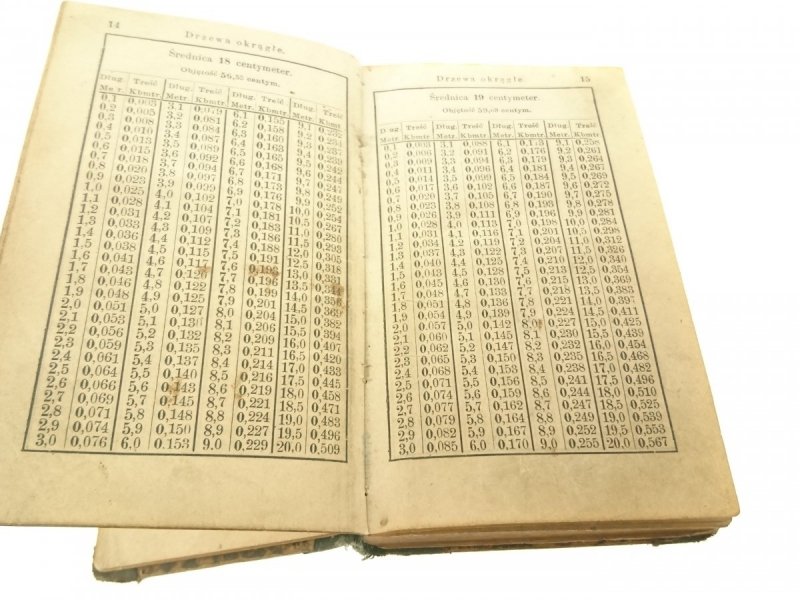 14
Drzewa okrągłe.
Średnica 18 centymeter.
Objętość 56,55 centym.
Dług. Treść Dług. Treść Dług. Treść Dług. Treść
Metr. Kbmtr. Metr. Kbmtr. Metr. Kbmtr. Metr. Kbmtr.
0.1 0.003 3.1 0.079 6.1 0.155 9.1 0.232
0.2 0.005 3.2 0.081 6.2 0.158 9.2 0.234
0.3 0.008 3.3 0.084 6.3 0.160 9.3 0.237
0.4 0,010 3.4 0.087 6.4 0.163 9.4 0.239
0.5 0,013 3.5 0.089 6.5 0.165 9.5 0.242
0.6 0,015 3.6 0.092 6.6 0.168 9.6 0.244
0.7 0,018 3.7 0.094 6.7 0.171 9.7 0.247
0.8 0,020 3.8 0.097 6.8 0.173 9.8 0.249
0.9 0,023 3.9 0.099 6.9 0.176 9.9 0.252
1.0 0,025 4.0 0,102 7.0 0,178 10.0 0.254
1.1 0,028 4.1 0,104 7.1 0,181 10.5 0.267
1.2 0,031 4,2 0,107 7.2 0,183 11.0 0.280
1.3 0,033 4,3 0,109 7.3 0,186 11.5 0.293
1.4 0,036 4,4 0,112 7,4 0,188 12.0 0.305
1.5 0,038 4,5 0,115 7,5 0,191 12.5 0.318
1.6 0,041 4,6 0,117 7,6 0,193 13.0 0.331
1,7 0,043 4,7 0,120 7,7 0,196 13.5
1,8 0,046 4,8 0,122 7,8 0,199 14.0 0.356
1,9 0,048 4,9 0,125 7,9 0,201 14.5 0.369
2,0 0,051 5,0 0,127 8,0 0,204 15.0 0.382
2,1 0,053 5,1 0,130 8,1 0,206 15.5 0.394
2,2 0,056 5,2 0,132 8,2 0,209 16,0 0.407
2,3 0,059 5,3 0,135 8,3 0,211 16,5 0.420
2,4 0,061 5,4 0,137 8,4 0,214 17,0 0,433
2,5 0,064 5,5 0,140 8,5 0,216 17,5 0,445
2,6 0,066 5,6 0,143 8,6 0,219 18,0 0,458
2,7 0,069 5,7 0,145 8,7 0,221 18,5 0,471
2,8 0,071 5,8 0,148 8,8 0,224 19,0 0,483
2,9 0,074 5,9 0,150 8,9 0,227 19,5 0,496
3,0 0,076 6,0 0,153 9,0 0,229 20,0 0,509
Drzewa okrągłe
15
Średnica 19 centymeter.
Objętość 59,69 centym.
Dług. Treść Dług. Treść Dług. Treść Dług. Treść
Metr. Kbmtr. Metr. Kbmtr. Metr. Kbmtr. Metr. Kbmtr.
0,1 0,003 3,1 0,088 6,1 0,173 9,1 0,258
0,2 0,006 3,2 0,091 6,2 0,176 9,2 0,261
0,3 0,009 3,3 0,094 6,3 0,179 9,3 0,264
0,4 0,011 3,4 0,096 6,4 0,181 9,4 0,267
0,5 0,014 3,5 0,099 6,5 0,184 9,5 0,269
0,6 0,017 3,6 0,102 6,6 0,187 9,6 0,272
0,7 0,020 3,7 0,105 6,7 0,190 9,7 0,275
0,8 0,023 3,8 0,108 6,8 0,193 9,8 0,278
0,9 0,026 3,9 0,111 6,9 0,196 9,9 0,281
1,0 0,028 4,0 0,113 7,0 0,198 10,0 0,284
1,1 0,031 4,1 0,116 7,1 0,201 10,5 0,298
1,2 0,034 4,2 0,119 7,2 0,204 11,0 0,312
1,3 0,037 4,3 0,122 7,3 0,207 11,5 0,326
1,4 0,040 4,4 0,125 7,4 0,210 12,0 0,340
1,5 0,043 4,5 0,128 7,5 0,213 12,5 0,354
1,6 0,045 4,6 0,130 7,6 0,215 13,0 0,369
1,7 0,048 4,7 0,133 7,7 0,218 13,5 0,383
1,8 0,051 4,8 0,136 7,8 0,221 14,0 0,397
1,9 0,054 4,9 0,139 7,9 0,224 14,5 0,411
2,0 0,057 5,0 0,142 8,0 0,227 15,0 0,425
2,1 0,060 5,1 0,145 8,1 0,230 15,5 0,439
2,2 0,062 5,2 0,147 8,2 0,232 16,0 0,454
2,3 0,065 5,3 0,150 8,3 0,235 16,5 0,468
2,4 0,068 5,4 0,153 8,4 0,238 17,0 0,482
2,5 0,071 5,5 0,156 8,5 0,241 17,5 0,496
2,6 0,074 5,6 0,159 8,6 0,244 18,0 0,510
2,7 0,077 5,7 0,162 8,7 0,247 18,5 0,525
2,8 0,079 5,8 0,164 8,8 0,249 19,0 0,539
2,9 0,082 5,9 0,167 8,9 0,252 19,5 0,553
3,0 0,085 6,0 0,170 9,0 0,255 20,0 0,567